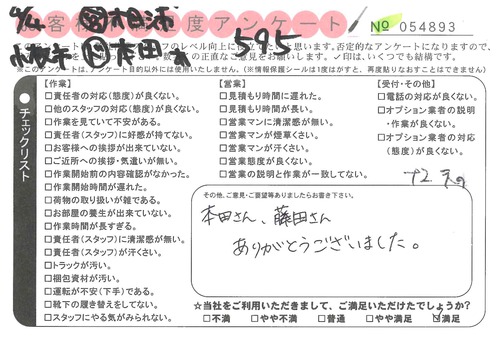 お客様満足度アンケート
№ 054893
595
本田
※このアンケートは、アンケート目的以外には使用いたしません。(※情報保護シールは1度はがすと、再度貼りなおすことはできません)
●チェックリスト
【作業】
□責任者の対応(態度)が良くない。
□他のスタッフの対応(態度)が良くない。
□作業を見ていて不安がある。
□責任者(スタッフ)に好感が持てない。
□お客様への挨拶が出来ていない。
□ご近所への挨拶・気遣いが無い。
□作業開始前の内容確認がなかった。
□作業開始時間が遅れた。
□荷物の取り扱いが雑である。
□お部屋の養生が出来ていない。
□作業時間が長すぎる。
□責任者(スタッフ)に清潔感が無い。
□責任者(スタッフ)が汗くさい。
□トラックが汚い。
□梱包資材が汚い。
□運転が不安(下手)である。
□靴下の履き替えをしてない。
□スタッフにやる気がみられない。
【営業】
□見積もり時間に遅れた。
□見積もり時間が長い。
□営業マンに清潔感が無い。
□営業マンが煙草くさい。
□営業マンが汗くさい。
□営業態度が良くない。
□営業の説明と作業が一致してない。
【受付・その他】
□電話の対応が良くない。
□オプション業者の説明
・作業が良くない。
□オプション業者の対応
(態度)が良くない。
その他、ご意見・ご要望等ありましたらお書き下さい。
本田さん、藤田さん
ありがとうございました。
★当社をご利用いただきまして、ご満足いただけたでしょうか?
□不満 □やや不満 □普通 □やや満足 ☑満足